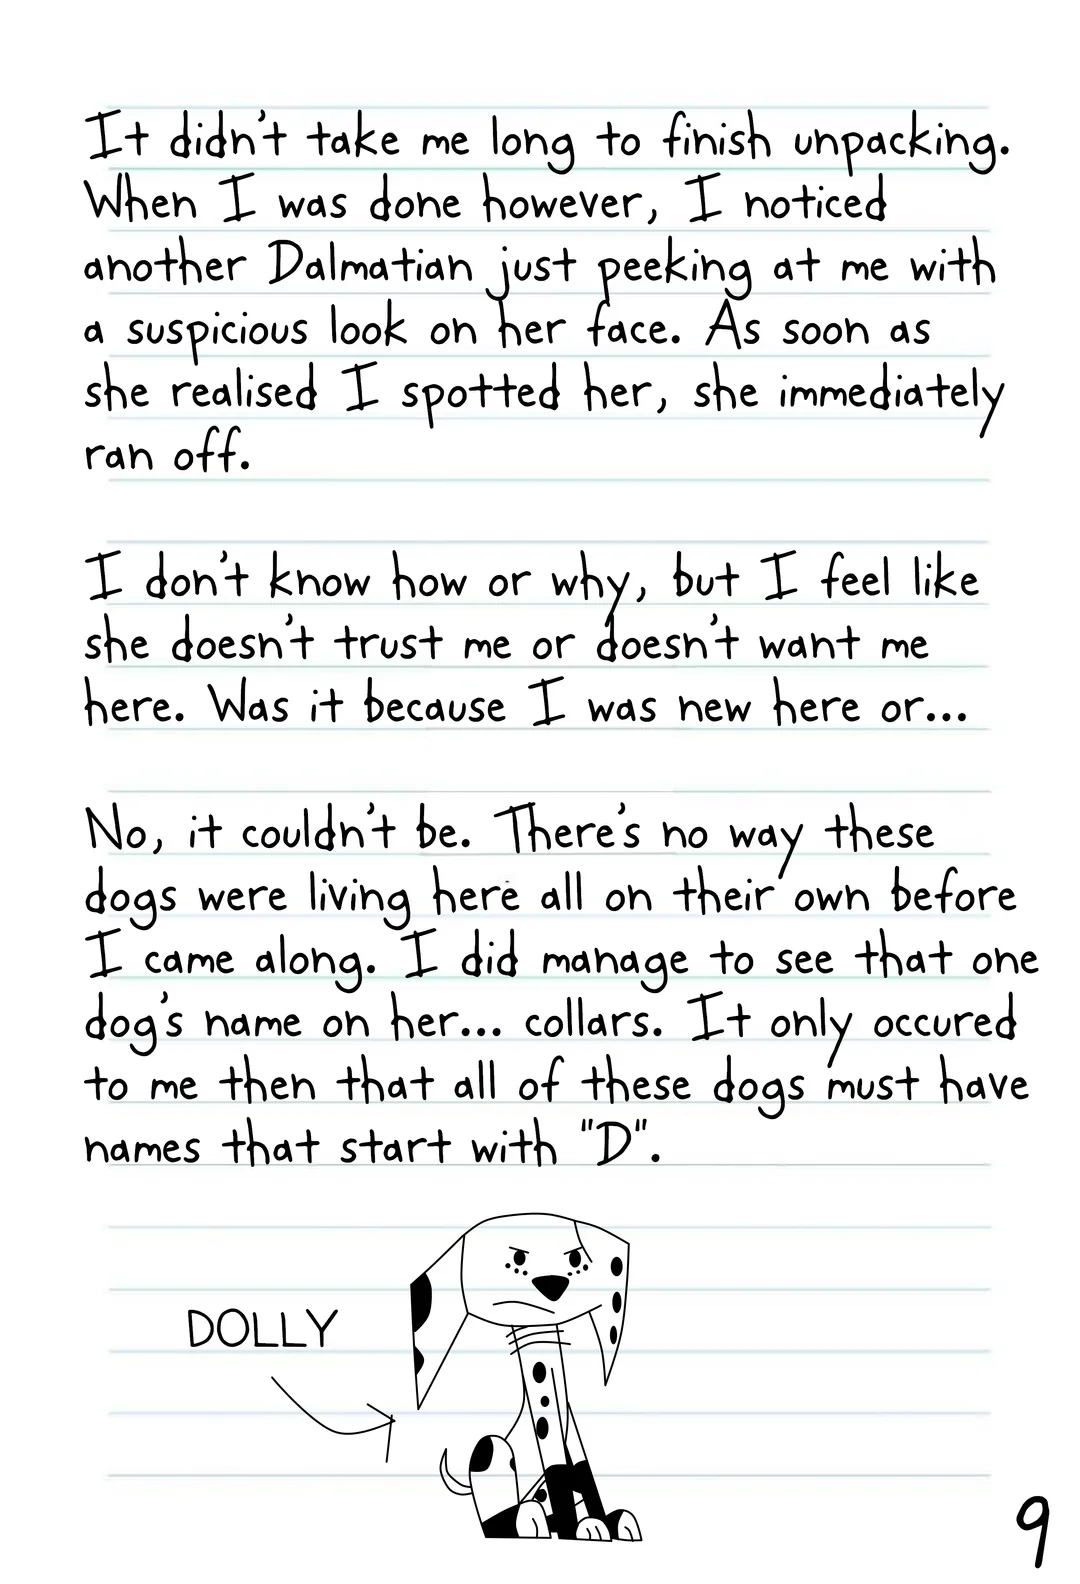 It didn't take me long to finish unpacking.
When I was done however, I noticed
another Dalmatian just peeking at me with
a suspicious look on her face. As soon as
she realised I spotted her, she immediately
ran off.
I don't know how or why, but I feel like
she doesn't trust me or doesn't want me
here. Was it because I was new here or...
No, it couldn't be. There's no way these
dogs were living here all on their own before
I came along. I did manage to see that one
dog's name on her... collars. It only occured
to me then that all of these dogs must have
names that start with "D".
DOLLY
9